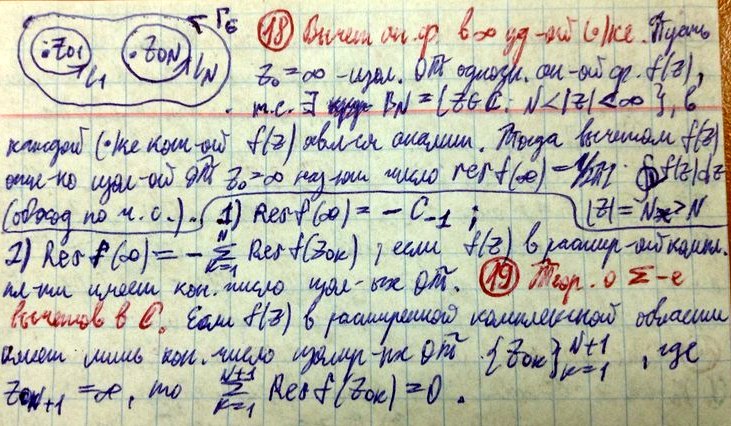 Z₀₁ γ₁ Z₀N γN Γб
⑱ Вычет ан. ф. в ∞ уд-ой (•)ке. Пусть
z₀ = ∞ - изол. ОТ однозн. ан-ой ф. f(z),
т.е. ∃ BN = {z∈C: N<|z|<∞}, в
каждой (•)ке кот-ой f(z) явл-ся аналит. Тогда вычетом f(z)
отн-но изол-ой ОТ z₀=∞ наз-ют число res f(∞) = 1/2πi · ∮ f(z)dz
(обход по ч.с.). 1) Res f(∞) = - C₋₁ ; |z| = > N
2) Res f(∞) = - Σ_{k=1}^{N} Res f(z₀k) , если f(z) в расшир-ой компл.
пл-ти имеет кон. число изол-ых ОТ. ⑲ Теор. о Σ-е
вычетов в C. Если f(z) в расширенной комплексной области
имеет лишь кон. число изолир-ых ОТ {z₀k}_{k=1}^{N+1} , где
z₀N+1 = ∞, то Σ_{k=1}^{N+1} Res f(z₀k) = 0 .